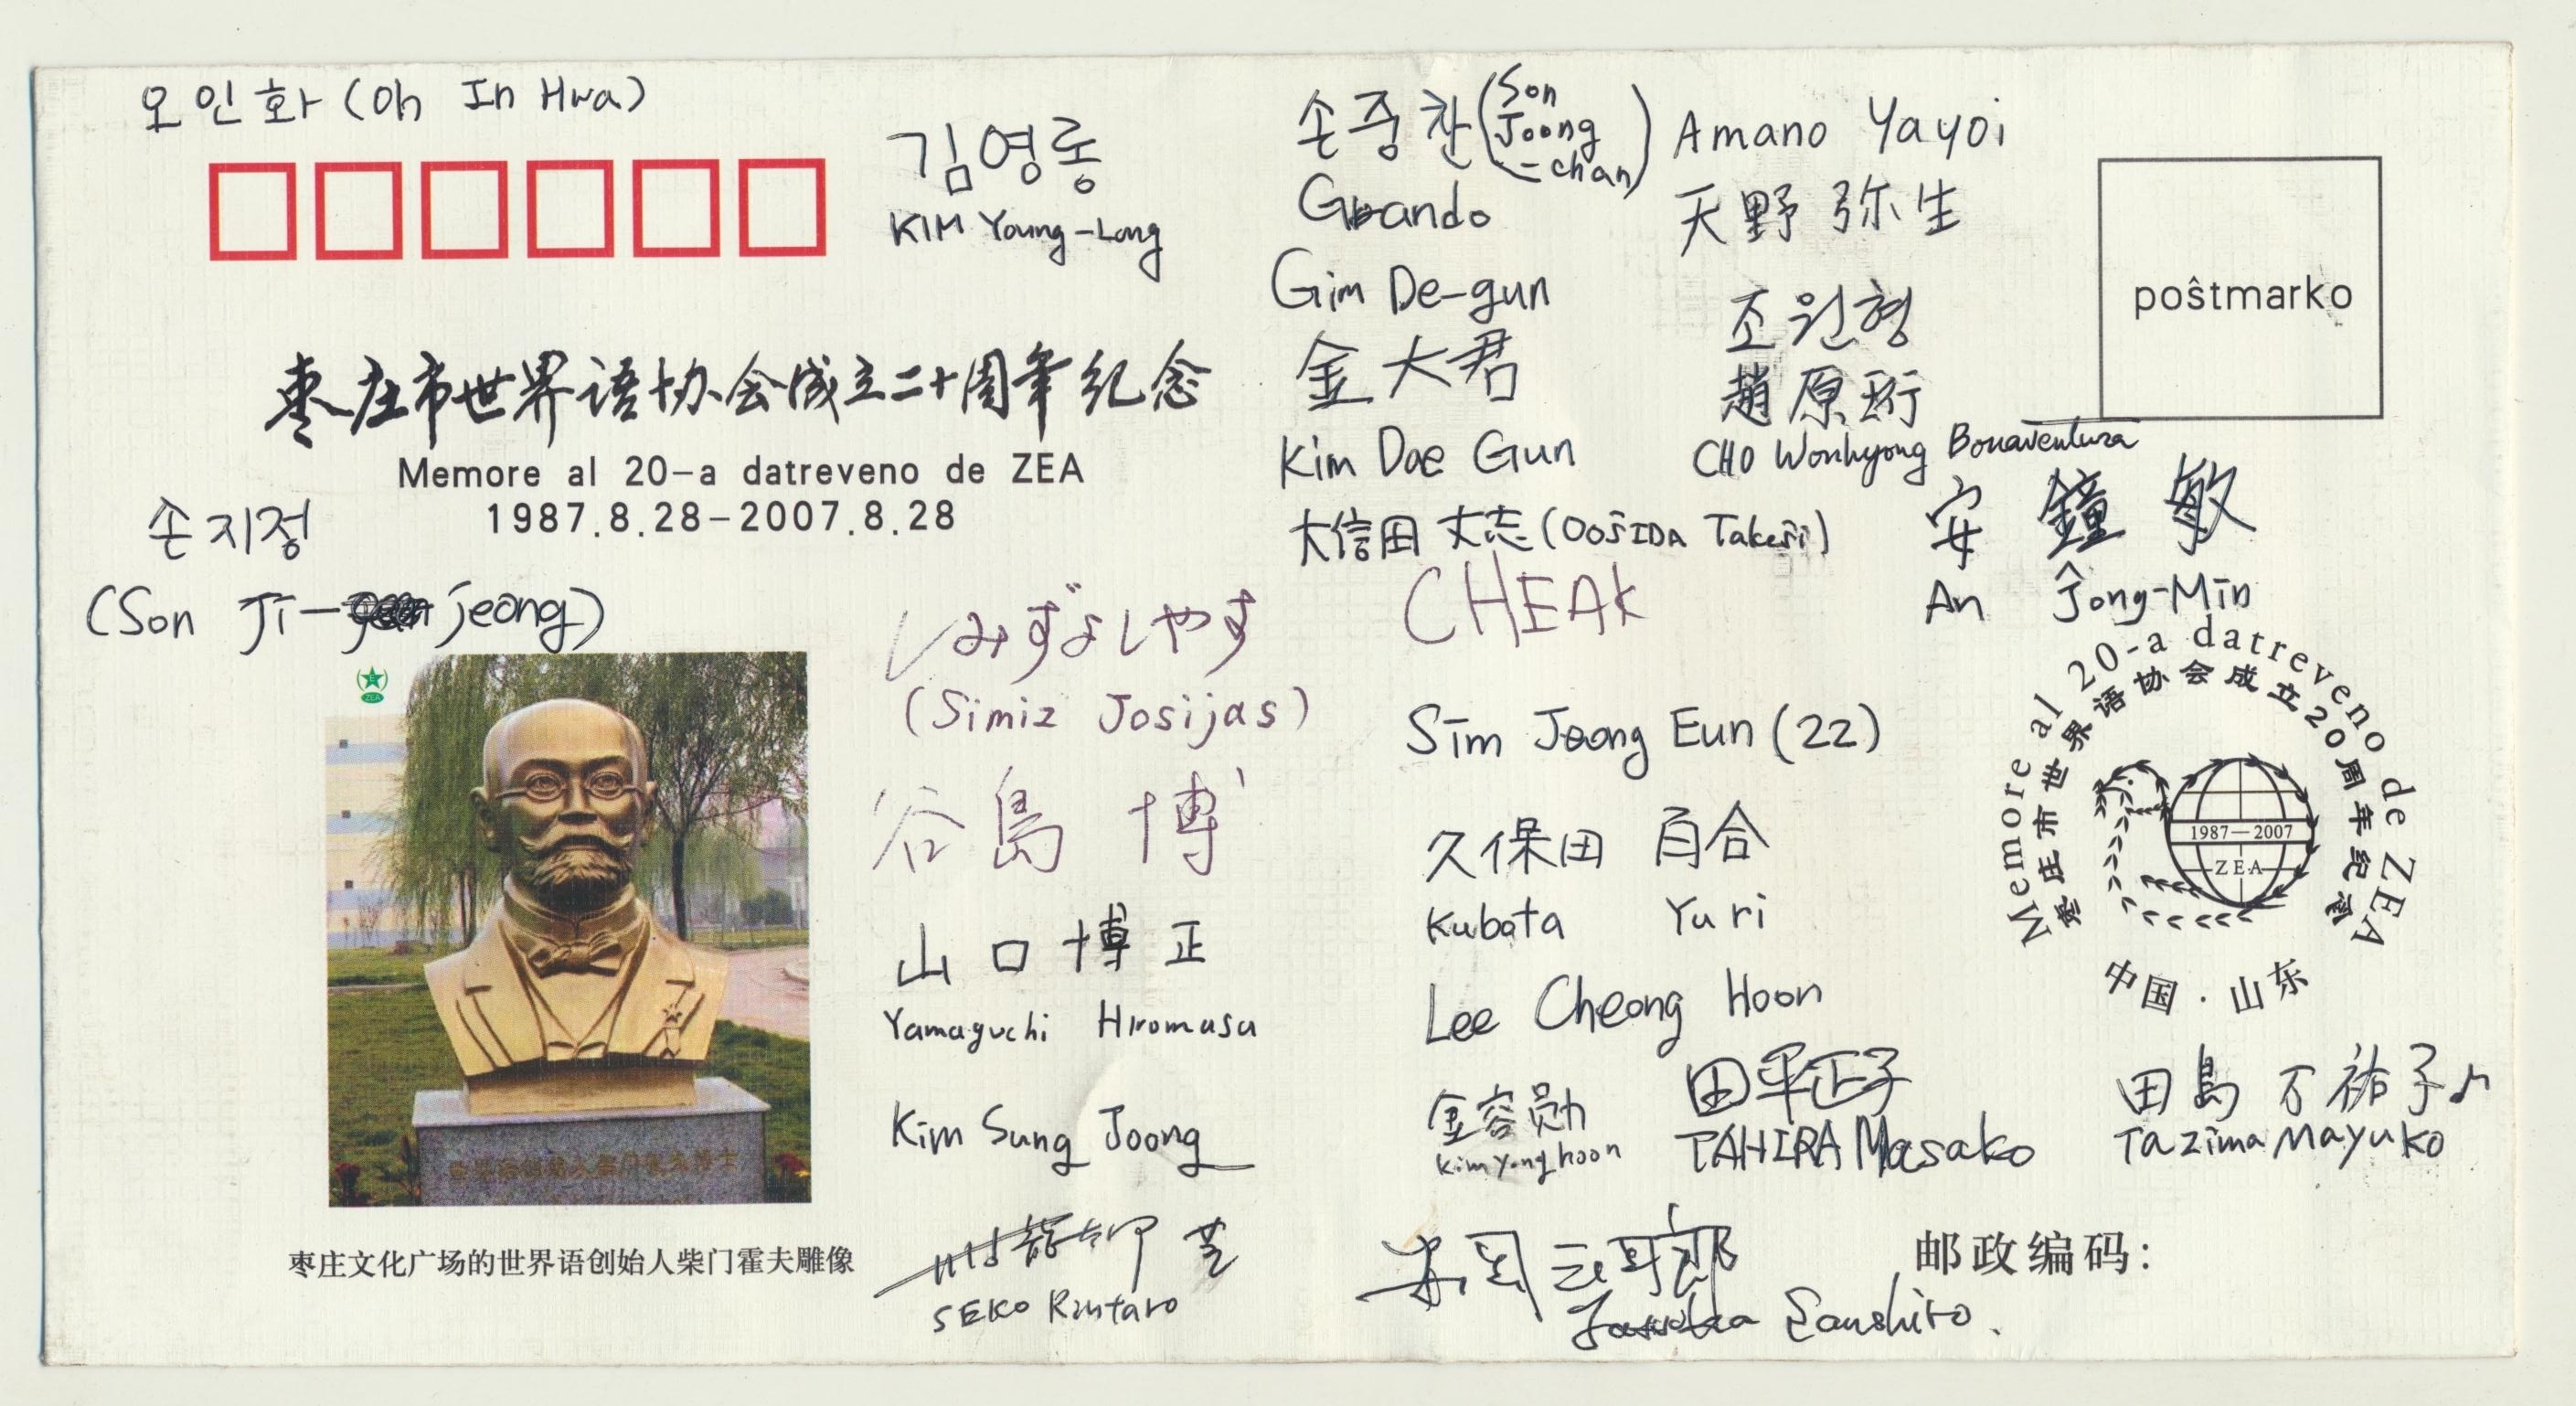 오인화 (Oh In Hwa)
김영롱
KIM Young-Long
손중찬 (Son Joong-chan)
Guando
Gim De-gun
金大君
Kim Dae Gun
大信田 丈志 (OOŜIDA Takeŝi)
Amano Yayoi
天野 弥生
조원형
趙原珩
CHO Wonhyong Bonaventura
poŝtmarko
安鐘敏
An Ĵong-Min
枣庄市世界语协会成立二十周年纪念
Memore al 20-a datreveno de ZEA
1987.8.28-2007.8.28
손지정
(Son Ji-jeong)
しみずよしやす
(Simiz Josijas)
谷島 博
山口博正
Yamaguchi Hiromasa
Kim Sung Joong
SEKO Rintaro
CHEAK
Sim Jeong Eun (22)
久保田 百合
Kubota Yuri
Lee Cheong Hoon
金容勲
Kim Yong hoon
田平正子
TAHIRA Masako
田島 万祐子♪
Tazima Mayuko
Sanshiro.
Memore al 20-a datreveno de ZEA
枣庄市世界语协会成立20周年纪念
1987—2007
ZEA
中国·山东
ZEA
枣庄文化广场的世界语创始人柴门霍夫雕像
邮政编码: